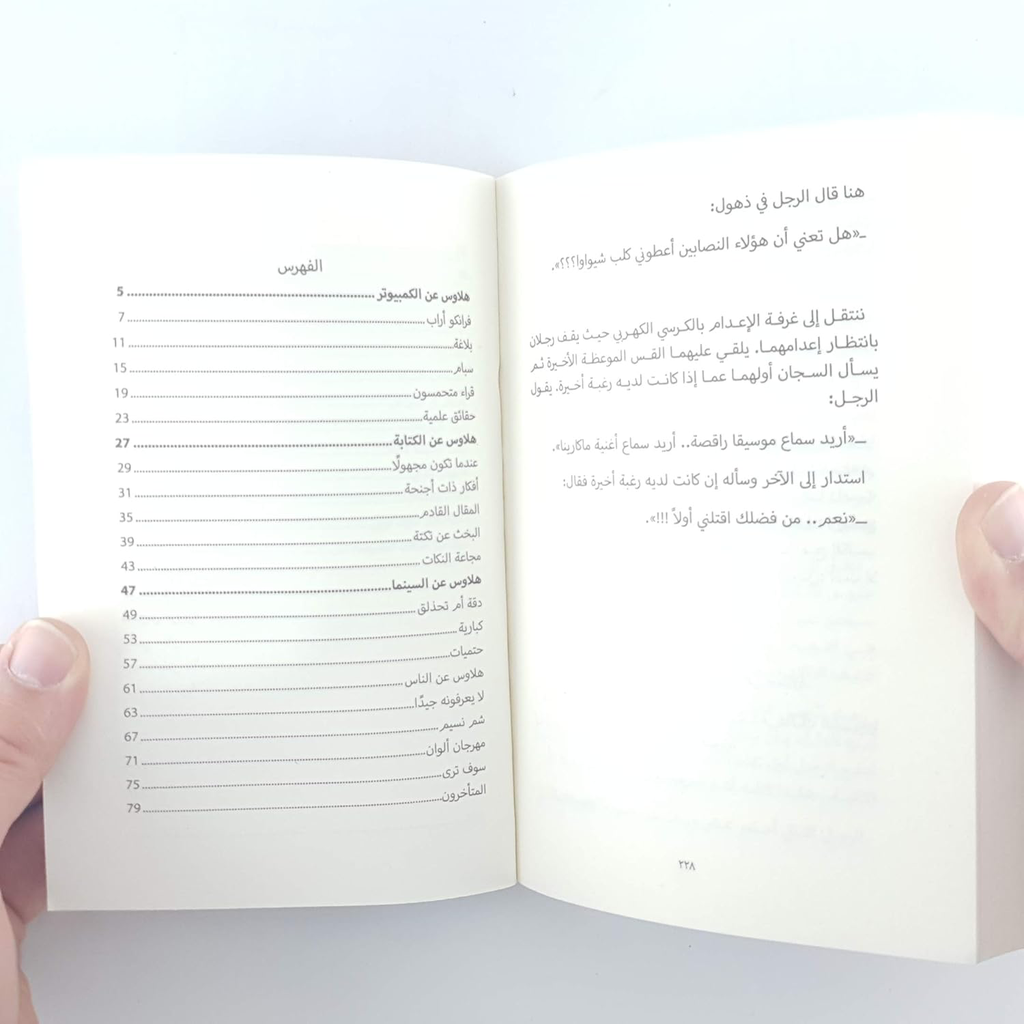 هنا قال الرجل في ذهول:
ـ«هل تعني أن هؤلاء النصابين أعطوني كلب شيواوا؟؟؟».
ننتقل إلى غرفة الإعدام بالكرسي الكهربي حيث يقف رجلان
بانتظار إعدامهما. يلقي عليهما القس الموعظة الأخيرة ثم
يسأل السجان أولهما عما إذا كانت لديه رغبة أخيرة. يقول
الرجل:
ــ«أريد سماع موسيقا راقصة.. أريد سماع أغنية ماكارينا».
استدار إلى الآخر وسأله إن كانت لديه رغبة أخيرة فقال:
ــ«نعم.. من فضلك اقتلني أولاً !!!».
٢٢٨
الفهرس
هلاوس عن الكمبيوتر ........ 5
فرانكو أراب ........ 7
بلاغة ........ 11
سبام ........ 15
قراء متحمسون ........ 19
حقائق علمية ........ 23
هلاوس عن الكتابة ........ 27
عندما تكون مجهولًا ........ 29
أفكار ذات أجنحة ........ 31
المقال القادم ........ 35
البخث عن نكتة ........ 39
مجاعة النكات ........ 43
هلاوس عن السينما ........ 47
دقة أم تحذلق ........ 49
كبارية ........ 53
حتميات ........ 57
هلاوس عن الناس ........ 61
لا يعرفونه جيدًا ........ 63
شم نسيم ........ 67
مهرجان ألوان ........ 71
سوف ترى ........ 75
المتأخرون ........ 79